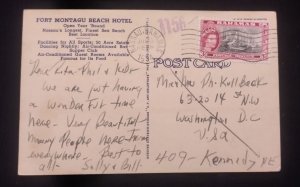 FORT MONTAGU BEACH HOTEL
Open Year 'Round
Nassau's Longest, Finest Sea Beach
Best Location
Facilities for All Sports; No Area Extra
Dancing Nightly; Air-Conditioned Bar
Supper Club
Air-Conditioned Rooms Available
Famous for Its Food
1156
BAHAMAS
POST CARD
Dear Rita-Phil + Kids
We are just having
a wonderful time
here. Very Beautiful
Many People here from
everywhere. Best to
all - Sally & Bill.
Mr & Mrs Ph. Kullback
6320 14 St NW
Washington D.C
USA
409- Kennedy NE